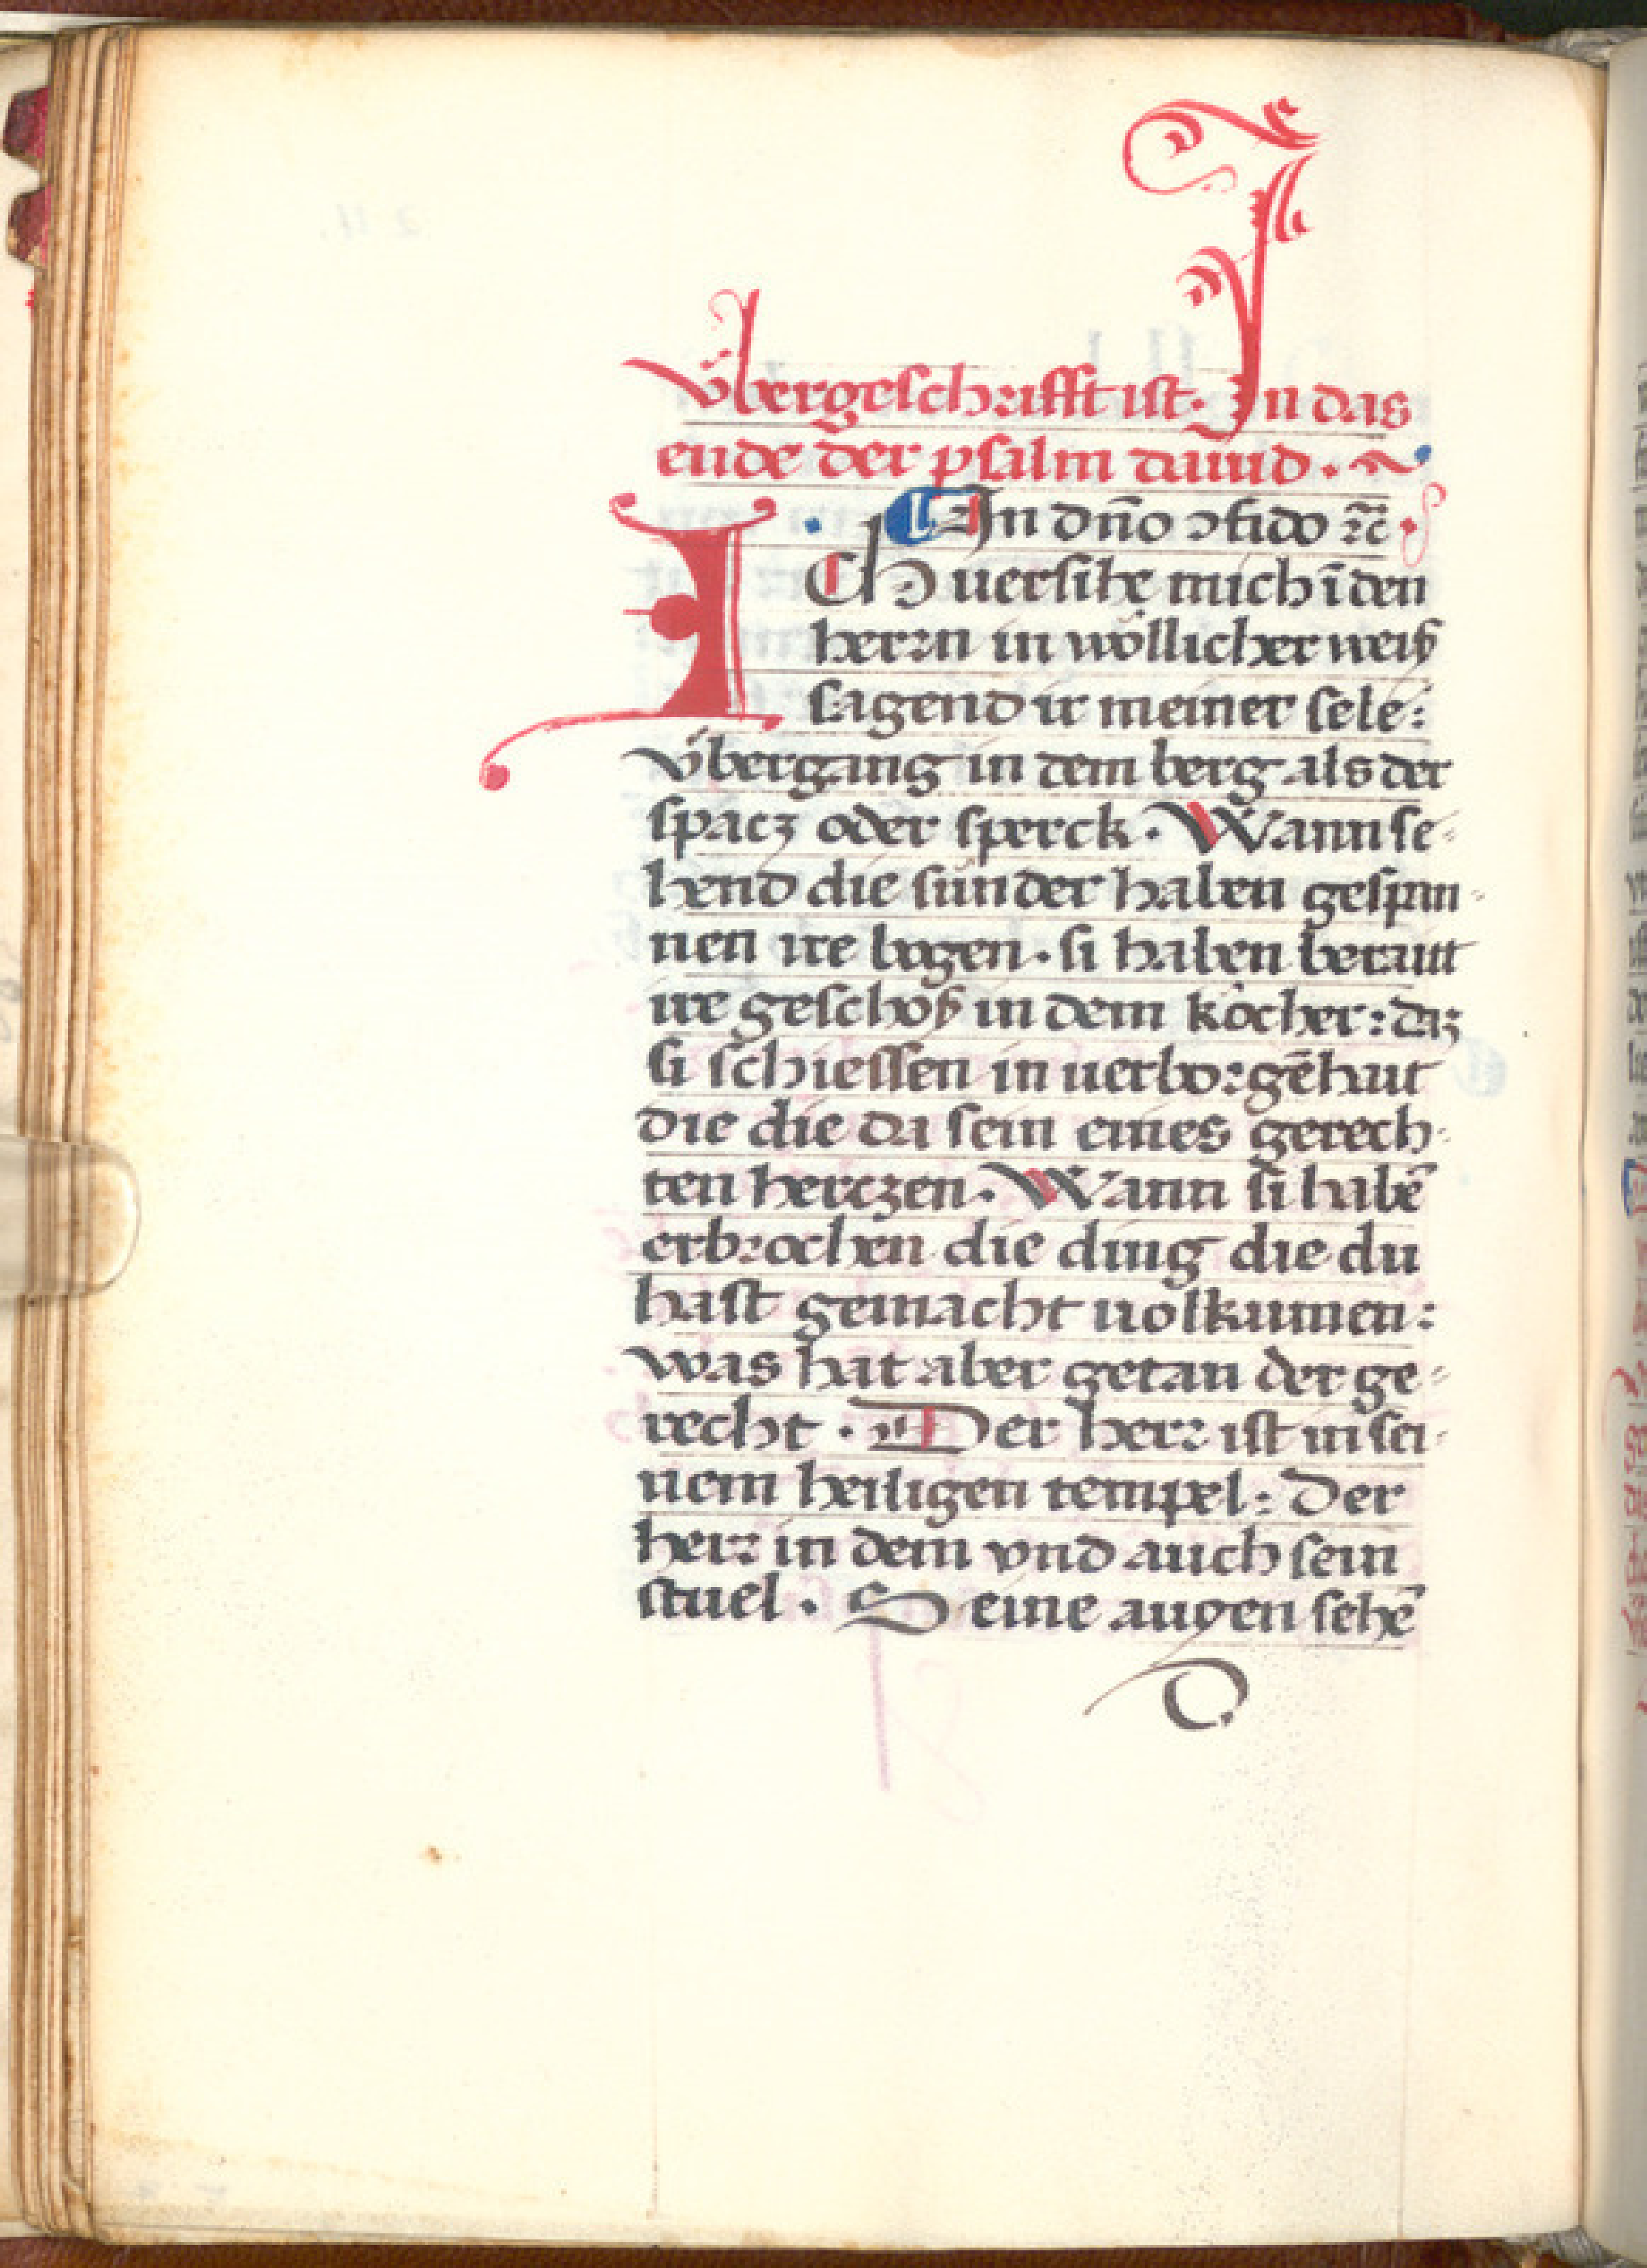 v̈bergeschrifft ist. In das
ende der psalm dauid.
In dño ꝯfido ⁊c̃
ICh uersihe mich ī den
herrn in wöllicher weiß
sagend ir meiner sele:
v̈bergang in dem berg als der
spacz oder sperck. Wann se-
hend die sunder haben gespan-
nen ire bogen. si haben beraitt
ire geschoß in dem kocher: daz
si schiessen in uerborgēhait
die die da sein eines gerech-
ten herczen. Wann si habē
erbrochen die ding die du
hast gemacht uolkumen:
was hat aber getan der ge-
recht. Der herr ist in sei-
nem heiligen tempel: Der
herr in dem vnd auch sein
stuel. Seine augen sehē